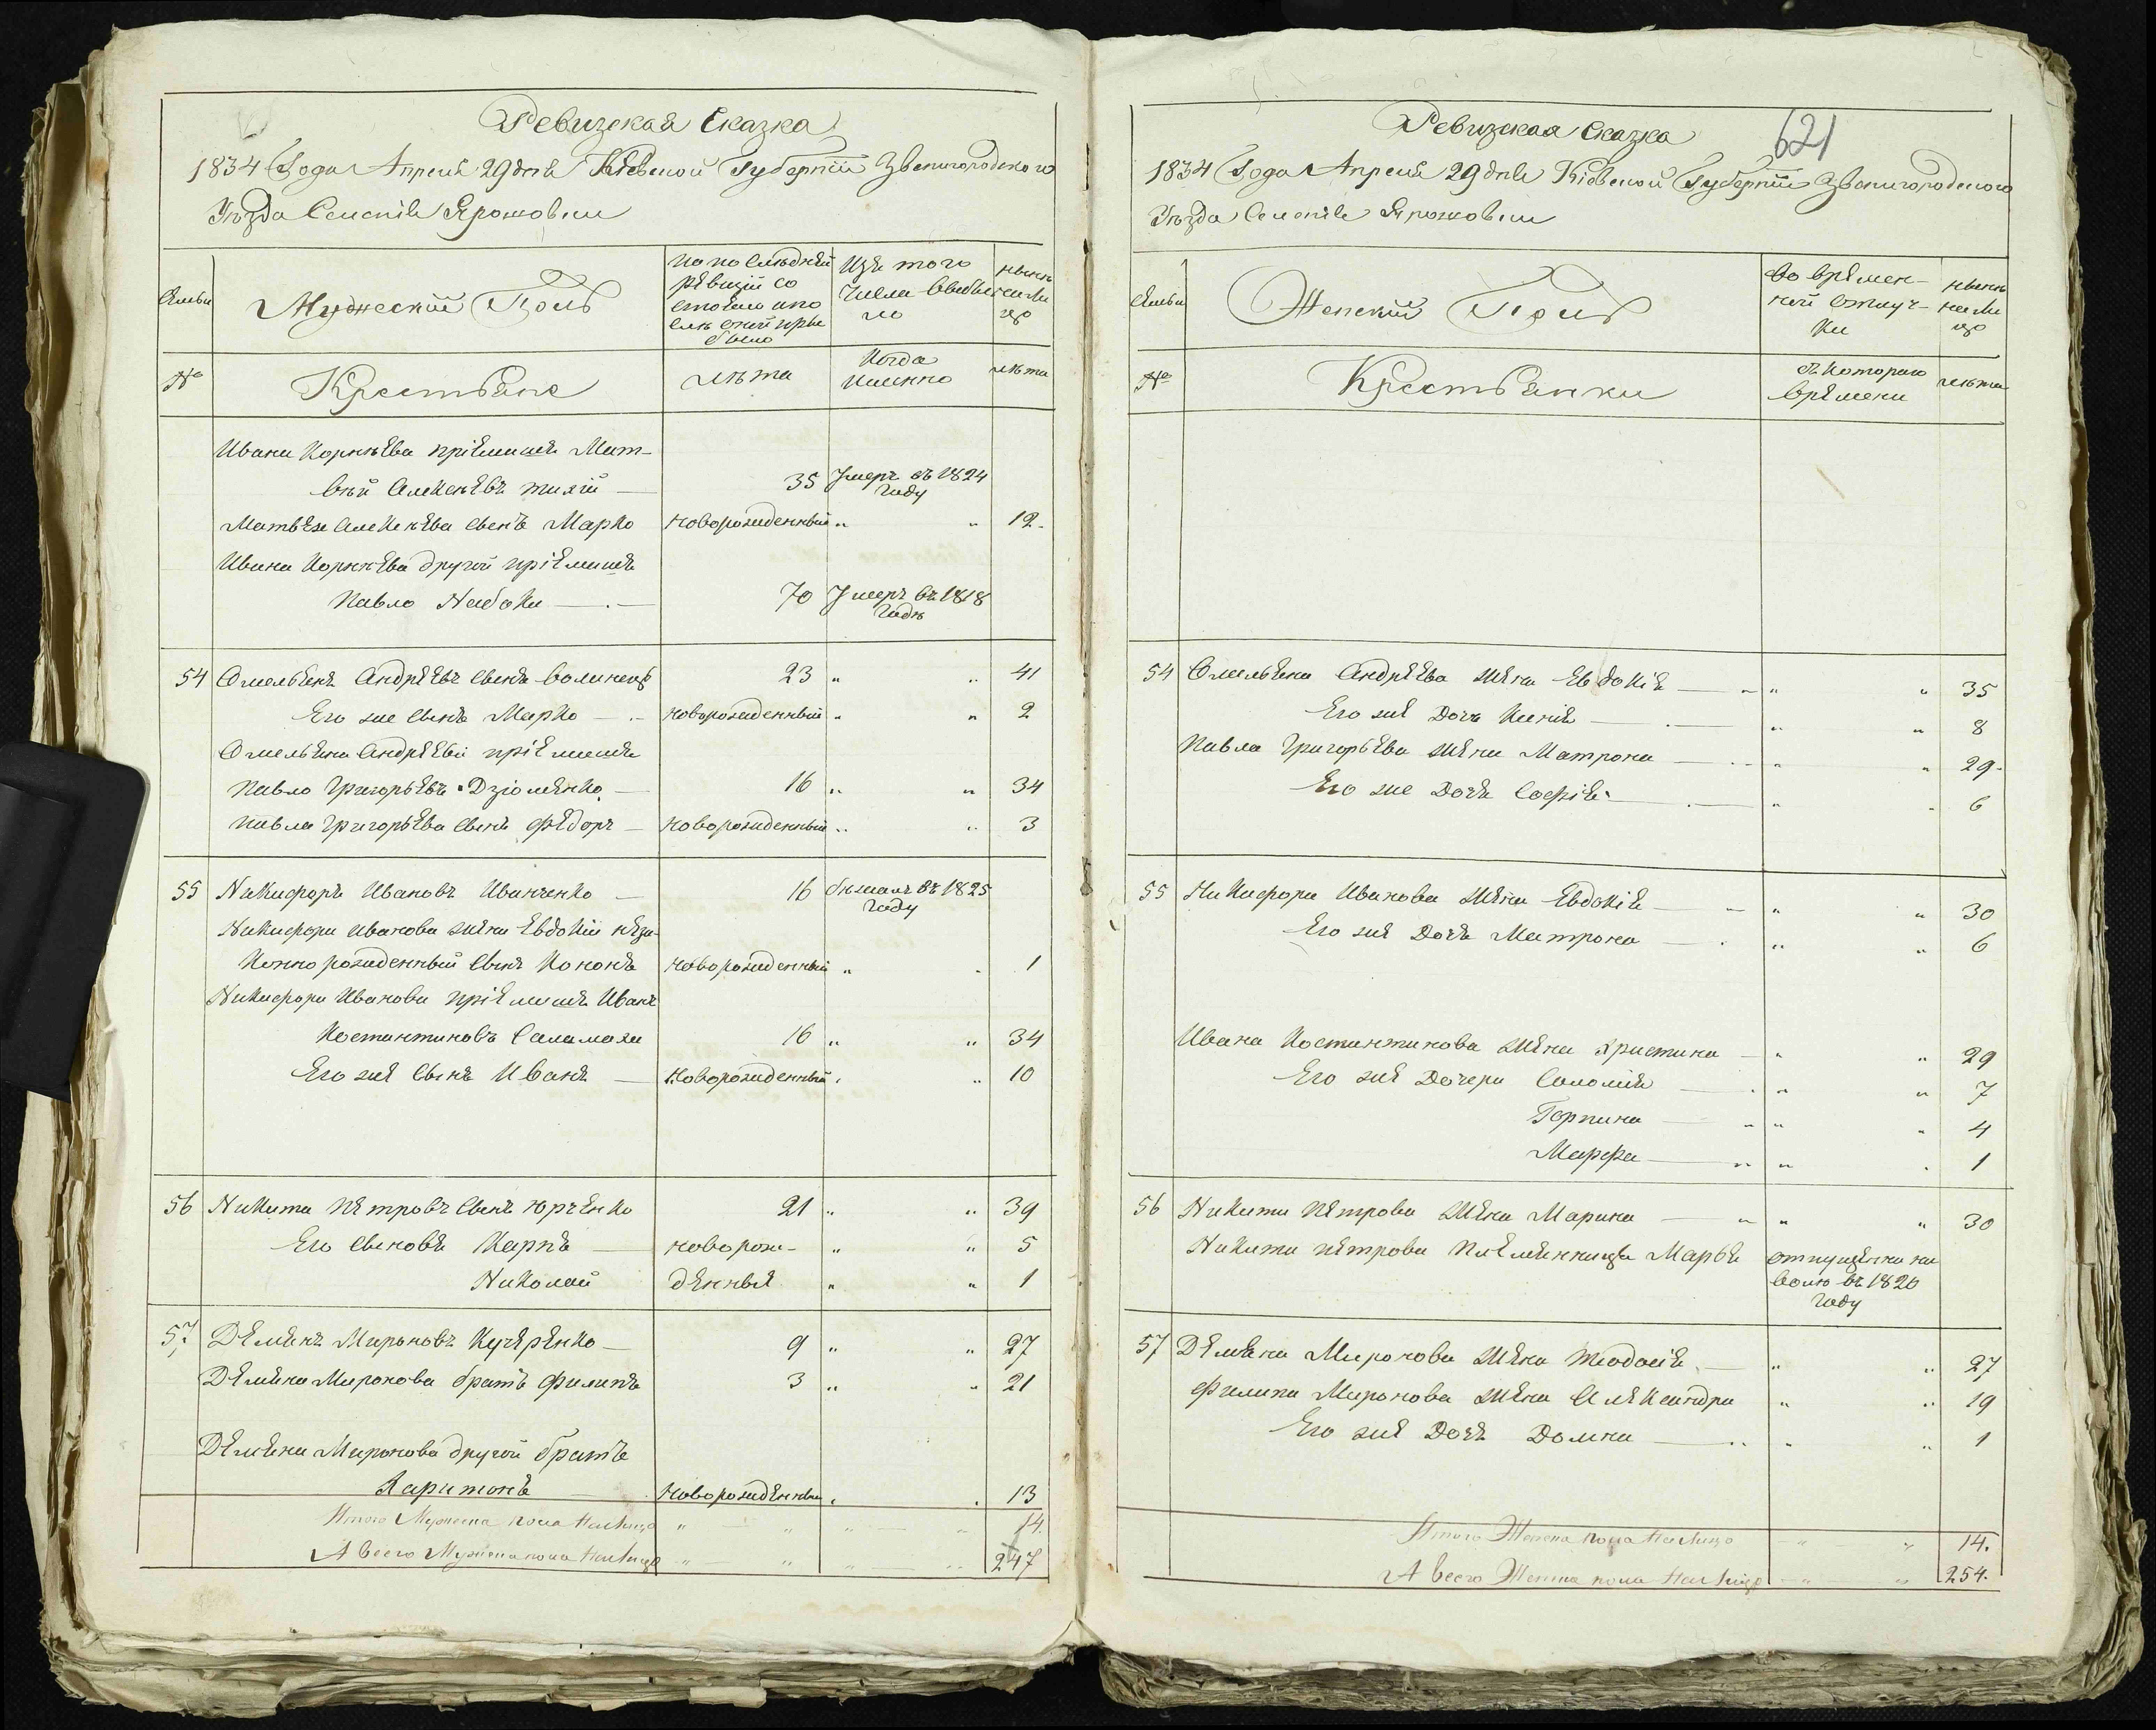 Ревизская Сказка
1834 Года Апреля 29 дня Кіевской Губерніи Звенигородского
Уѣзда Селенія Ерошовки
Семьи
Мужескій Полъ
По последней
ревизіи со
стояло и по
слѣ оной пры
было
Изъ того
числа выбы
ло
нынѣ
на ли
цо
№
Крестьяне
лѣта
Когда
именно
лѣта
Ивана Корнѣева пріемишъ Мат-
вѣй Алексѣевъ 35 Умеръ въ 1824
Году
Матвея Алексѣева сынъ Марко новорожденный " " 12.
Ивана Корнѣева другой пріемишъ
Павло Набока 70 Умеръ въ 1818
Годѣ
54 Омельянъ Андрѣевъ сынъ Волинецъ 23 " " 41
Его же сынъ Марко новорожденный " " 2
Омельяна Андрѣева пріемишъ
Павло Григорьевъ Дзюменко 16 " " 34
Павла Григорьева сынъ Федоръ новорожденный " " 3
55 Никифоръ Ивановъ Иванченко 16 бѣжалъ въ 1825
году
Никифора Иванова жены Евдокіи неза-
конно рожденный сынъ Кононъ новорожденный " " 1
Никифора Иванова пріемишъ Иванъ
Костантиновъ Саламаха 16 " " 34
Его же сынъ Иванъ Новорожденный " " 10
56 Никита Петровъ сынъ Юрченко 21 " " 39
Его сыновья Карпъ новорож- " " 5
Николай денные " " 1
57 Демянъ Мироновъ Кучеренко 9 " " 27
Демяна Миронова братъ Филипъ 3 " " 21
Демяна Миронова другой братъ
Харитонъ новорожденный " " 13
Итого Мужеска пола налицо " " " " 14.
А всего Мужеска пола налицо " " " " 247
Ревизская Сказка
621
1834 Года Апреля 29 дня Кіевской Губерніи Звенигородского
Уѣзда Селенія Ерошовки
Семьи
Женскій Полъ
Во времен-
ной отлуч-
ки
нынѣ
на ли
цо
№
Крестьянки
съ котораго
времени
лѣта
54 Омельяна Андрѣева жена Евдокія " " 35
Его же дочь Ксенія " " 8
Павла Григорьева жена Матрона " " 29.
Его же дочь Софія " " 6
55 Никифора Иванова жена Евдокія " " 30
Его же дочь Матрона " " 6
Ивана Костантинова жена Христина " " 29
Его же дочери Соломія " " 7
Горпина " " 4
Марфа " " 1
56 Никити Петрова жена Марина " " 30
Никити Петрова племянница Марья отпущена на
волю въ 1826
году
57 Демяна Миронова жена Теодосія " " 27
Филипа Миронова жена Александра " " 19
Его же дочь Домна " " 1
Итого Женска пола налицо " " 14.
А всего Женска пола налицо " " 254.